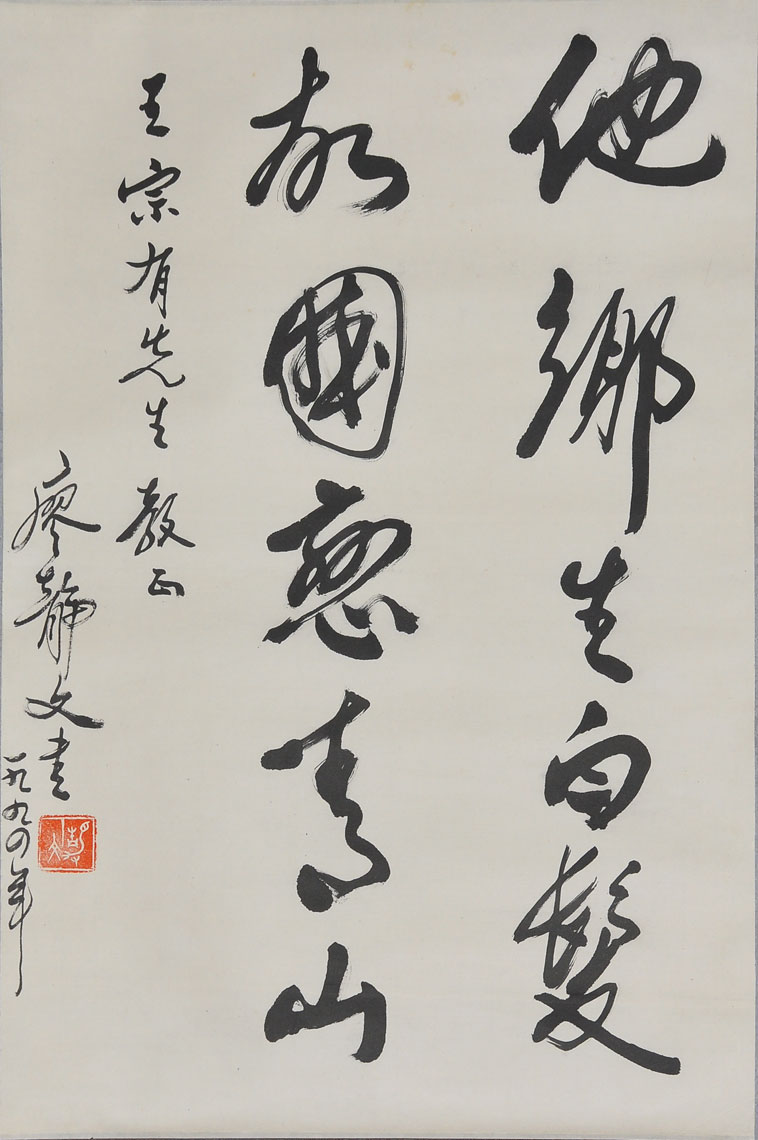 他鄉生白髮
故國戀青山
王宗有先生教正
廖靜文書
一九九四年